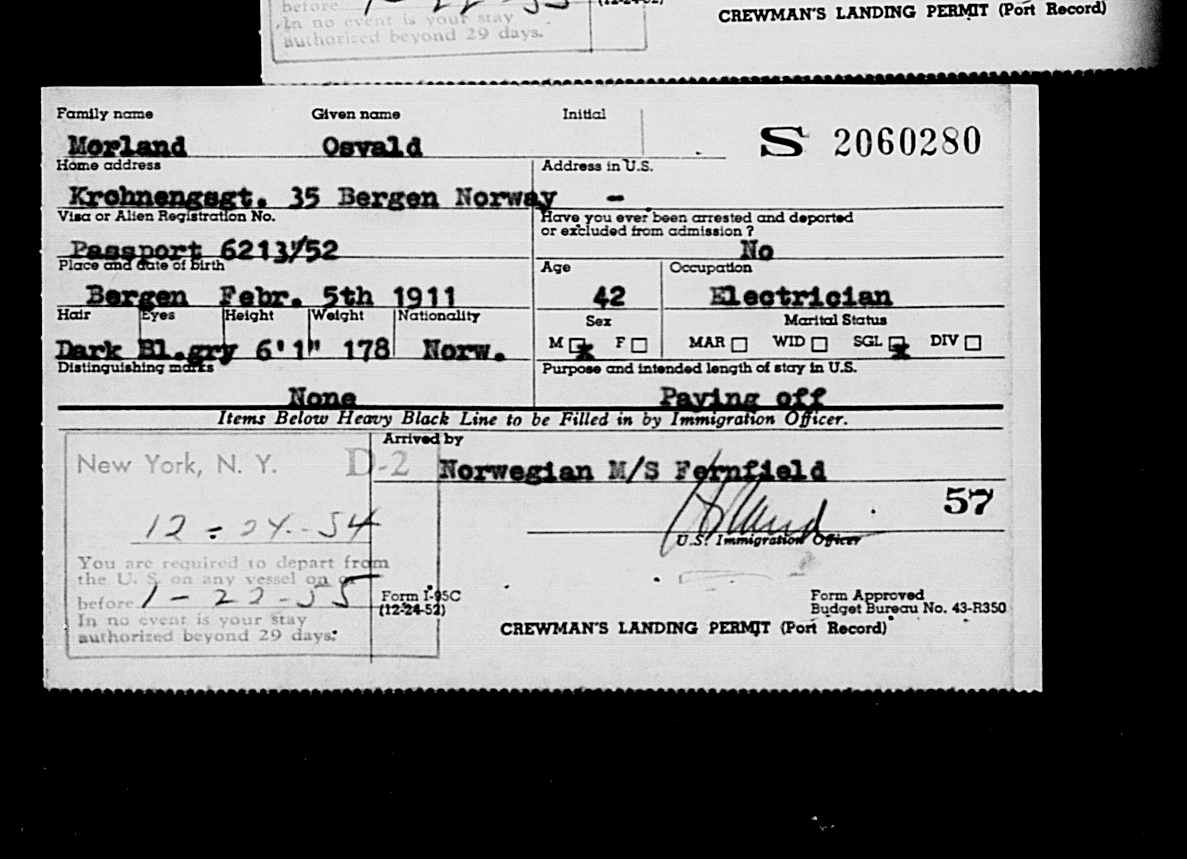 before
In no event is your stay
authorized beyond 29 days.
CREWMAN'S LANDING PERMIT (Port Record)
Family name Given name Initial
Morland Osvald
S 2060280
Home address Address in U.S.
Krohnengsgt. 35 Bergen Norway -
Visa or Alien Registration No. Have you ever been arrested and deported
or excluded from admission?
Passport 6213/52 No
Place and date of birth Age Occupation
Bergen Febr. 5th 1911 42 Electrician
Hair Eyes Height Weight Nationality Sex Marital Status
Dark Bl.gry 6'1" 178 Norw. M F MAR WID SGL DIV
Distinguishing marks Purpose and intended length of stay in U.S.
None Paying off
Items Below Heavy Black Line to be Filled in by Immigration Officer.
Arrived by
New York, N. Y. D-2 Norwegian M/S Fernfield
57
12-24-54
U.S. Immigration Officer
You are required to depart from
the U. S. on any vessel on or
before 1-22-55
In no event is your stay
authorized beyond 29 days.
Form I-95C
(12-24-52)
Form Approved
Budget Bureau No. 43-R350
CREWMAN'S LANDING PERMIT (Port Record)